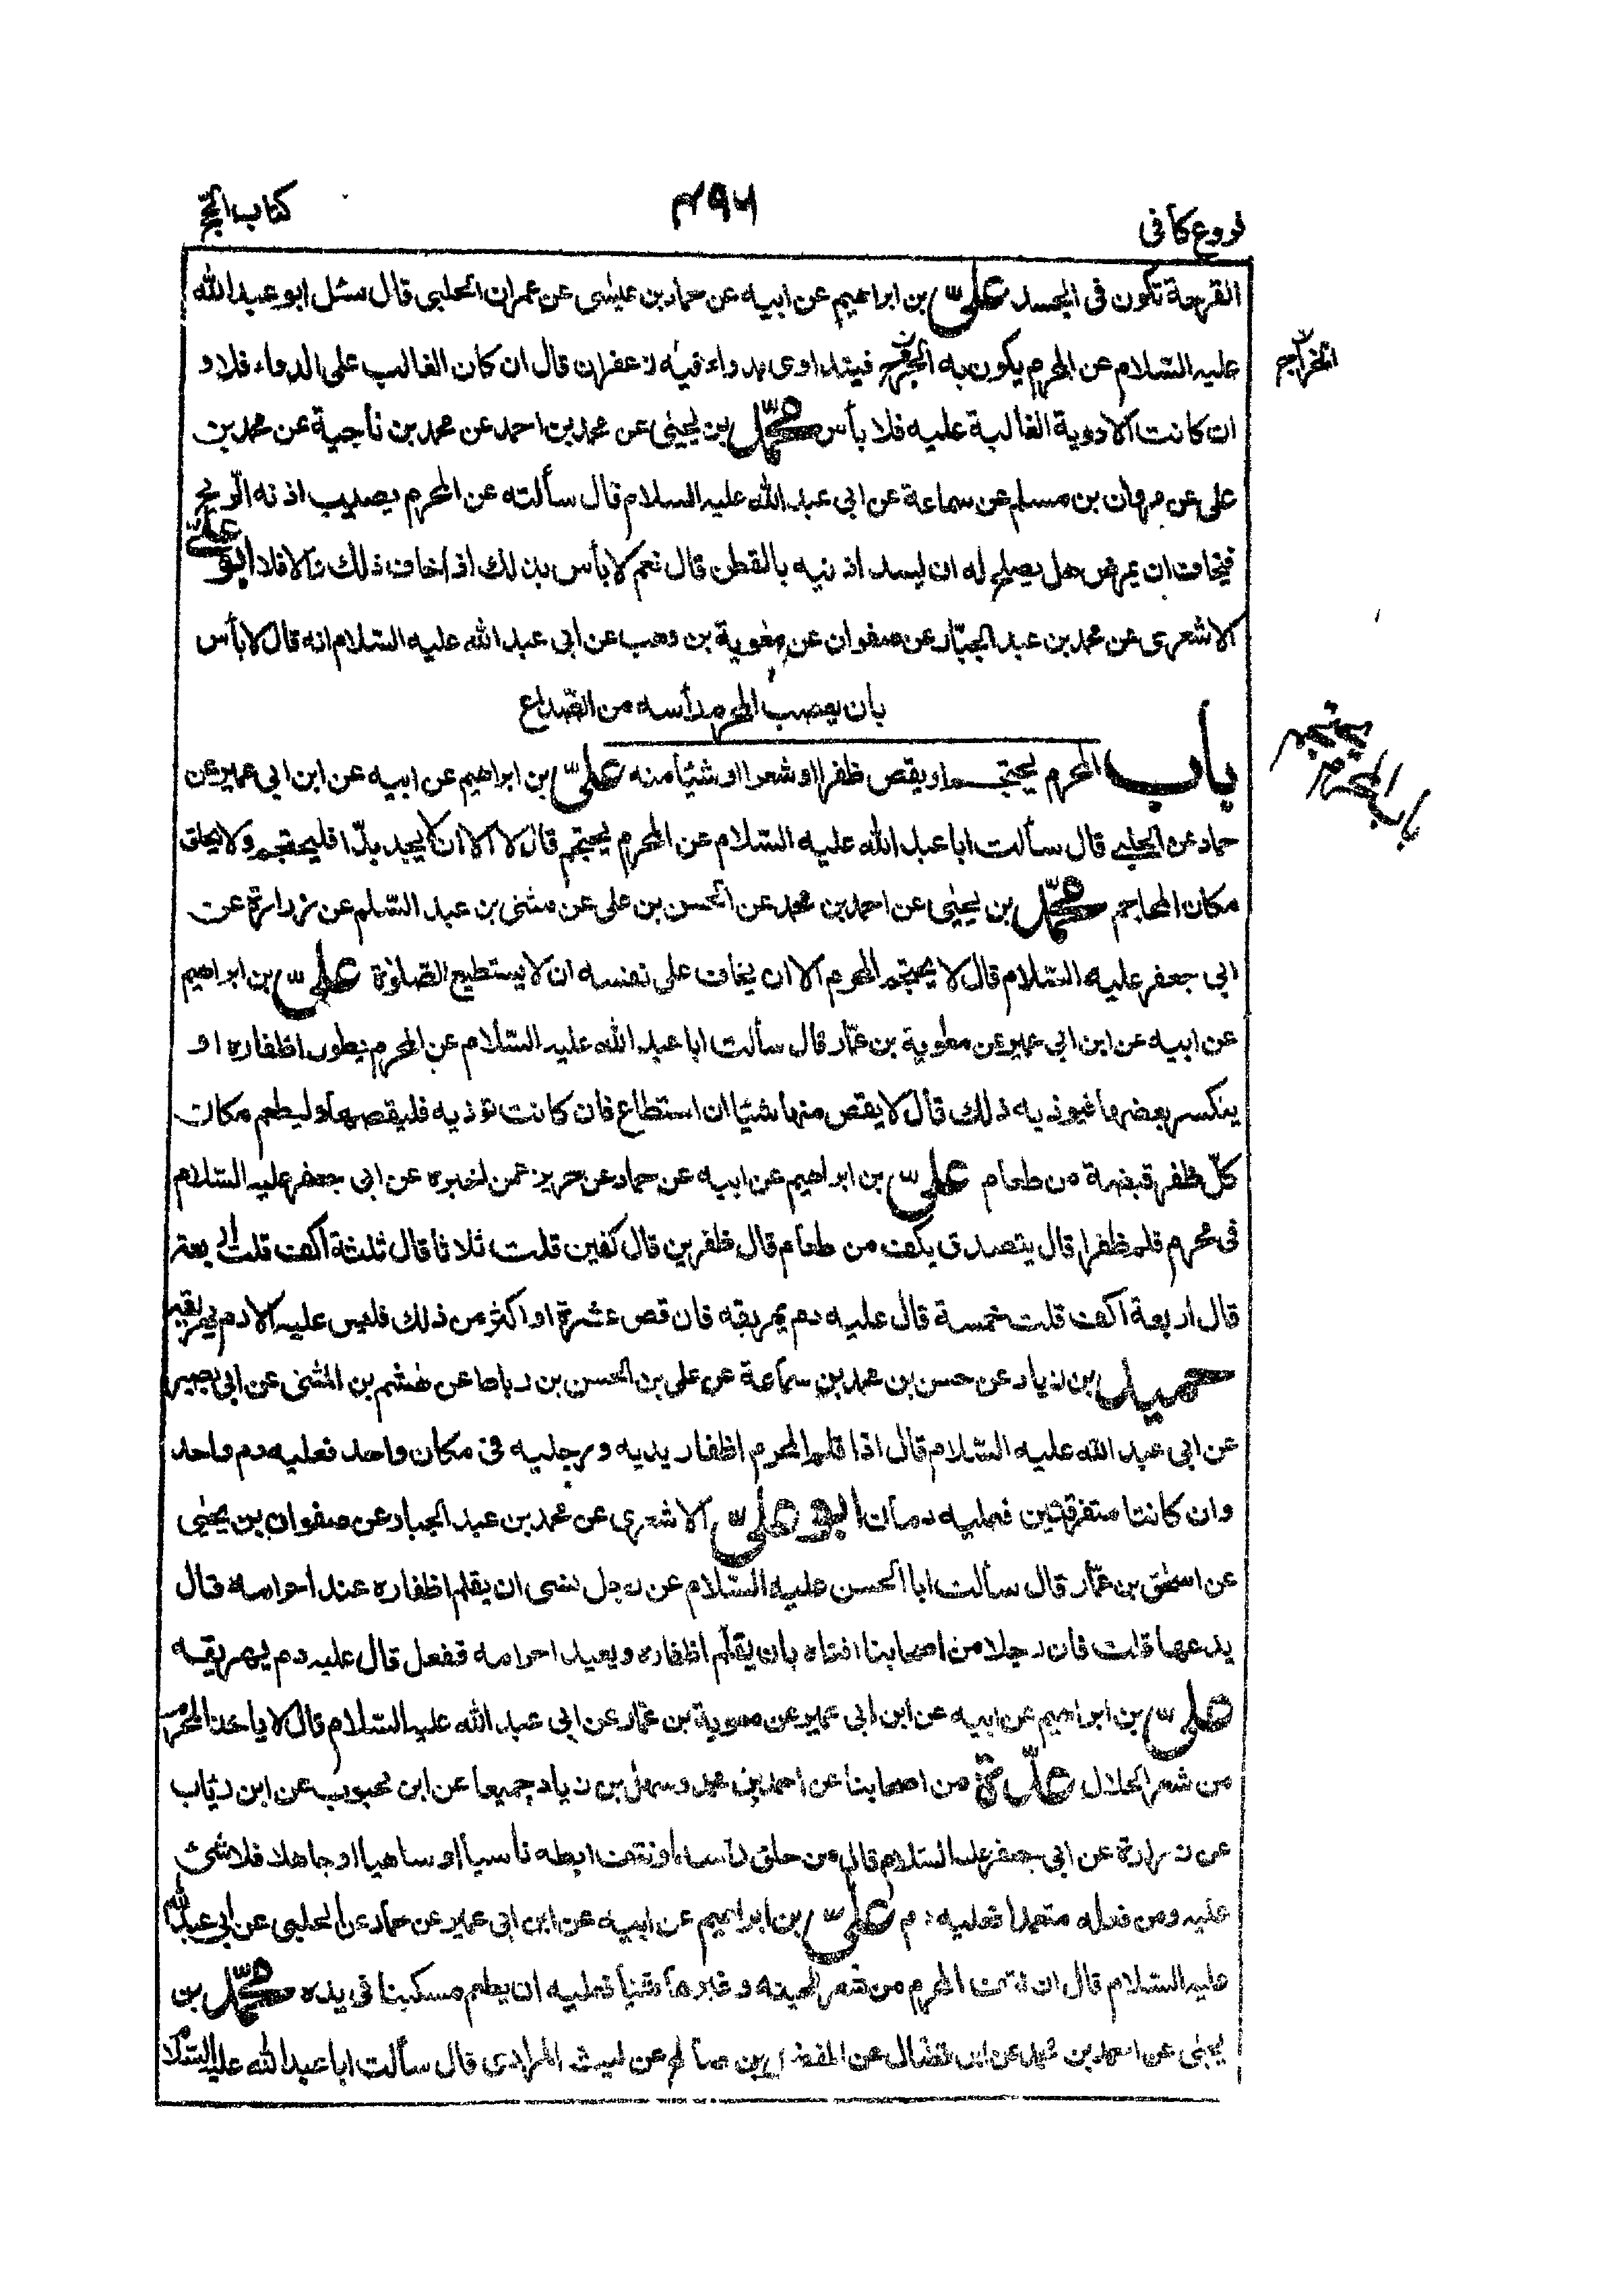 فروع كافى
۴۹۶
كتاب الحج
القرحة تكون فى الجسد علىّ بن ابراهيم عن ابيه عن حماد بن عيسٰى عن عمران الحلبى قال سئل ابو عبد الله
عليه السّلام عن المحرم يكون به الجرح فيتداوى بدواء فيه زعفران قال ان كان الغالب على الدواء فلا و
الخراج
ان كانت الادوية الغالبة عليه فلا بأس محمّد بن يحيٰى عن محمد بن احمد عن محمد بن ناجية عن محمد بن
على عن مروان بن مسلم عن سماعة عن ابى عبد الله عليه السلام قال سألته عن المحرم يصيب اذنه الرّيح
فيخاف ان يمرض هل يصلح له ان يسد اذنيه بالقطن قال نعم لا بأس بذلك اذا خاف ذلك والا فلا ابو علىّ
الاشعرى عن محمد بن عبد الجبّار عن صفوان عن معٰوية بن وهب عن ابى عبد الله عليه السّلام انه قال لا بأس
بان يعصب المحرم رأسه من الصّداع
باب المحرم يحتجم او يقص ظفرا او شعرا او شيئا منه علىّ بن ابراهيم عن ابيه عن ابن ابى عمير عن
باب المحرم يحتجم
حماد عن الحلبى قال سألت ابا عبد الله عليه السّلام عن المحرم يحتجم قال لا الا ان لا يجد بدّا فليحتجم ولا يحلق
مكان المحاجم محمّد بن يحيٰى عن احمد بن محمد عن الحسن بن على عن مثنى بن عبد السّلم عن زرارة عن
ابى جعفر عليه السّلام قال لا يحتجم المحرم الا ان يخاف على نفسه ان لا يستطيع الصّلٰوة علىّ بن ابراهيم
عن ابيه عن ابن ابى عمير عن معٰوية بن عمّار قال سألت ابا عبد الله عليه السّلام عن المحرم يطول اظفاره او
ينكسر بعضها فيوذيه ذلك قال لا يقص منها شيئا ان استطاع فان كانت توذيه فليقصها وليطعم مكان
كلّ ظفر قبضة من طعام علىّ بن ابراهيم عن ابيه عن حماد عن حريز عمن اخبره عن ابى جعفر عليه السّلام
فى محرم قلم ظفرا قال يتصدق بكف من طعام قال ظفرين قال كفين قلت ثلاثا قال ثلثة اكف قلت اربعة
قال اربعة اكف قلت خمسة قال عليه دم يهريقه فان قص عشرة او اكثر من ذلك فليس عليه الا دم يهريقه
حميد بن زياد عن حسن بن محمد بن سماعة عن على بن الحسن بن رباط عن هٰشم بن المثنى عن ابى بصير
عن ابى عبد الله عليه السّلام قال اذا قلم المحرم اظفار يديه ورجليه فى مكان واحد فعليه دم واحد
وان كانتا متفرقتين فعليه دمان ابو علىّ الاشعرى عن محمد بن عبد الجبار عن صفوان بن يحيٰى
عن اسحٰق بن عمّار قال سألت ابا الحسن عليه السّلام عن رجل نسى ان يقلم اظفاره عند احرامه قال
يدعها قلت فان رجلا من اصحابنا افتاه بان يقلّم اظفاره ويعيد احرامه ففعل قال عليه دم يهريقه
علىّ بن ابراهيم عن ابيه عن ابن ابى عمير عن معٰوية بن عمّار عن ابى عبد الله عليه السّلام قال لا ياخذ المحرم
من شعر الحلال عدّة من اصحابنا عن احمد بن محمد وسهل بن زياد جميعا عن ابن محبوب عن ابن رئاب
عن زرارة عن ابى جعفر عليه السّلام قال من حلق رأسه او نتف ابطه ناسيا او ساهيا او جاهلا فلا شئ
عليه ومن فعله متعمدا فعليه دم علىّ بن ابراهيم عن ابيه عن ابن ابى عمير عن حمّاد عن الحلبى عن ابى عبد الله
عليه السّلام قال ان نتف المحرم من شعر لحيته وغيرها شيئا فعليه ان يطعم مسكينا فى يده محمّد بن
يحيٰى عن احمد بن محمد عن ابن فضّال عن المفضل بن صالح عن ليث المرادى قال سألت ابا عبد الله عليه السّلام